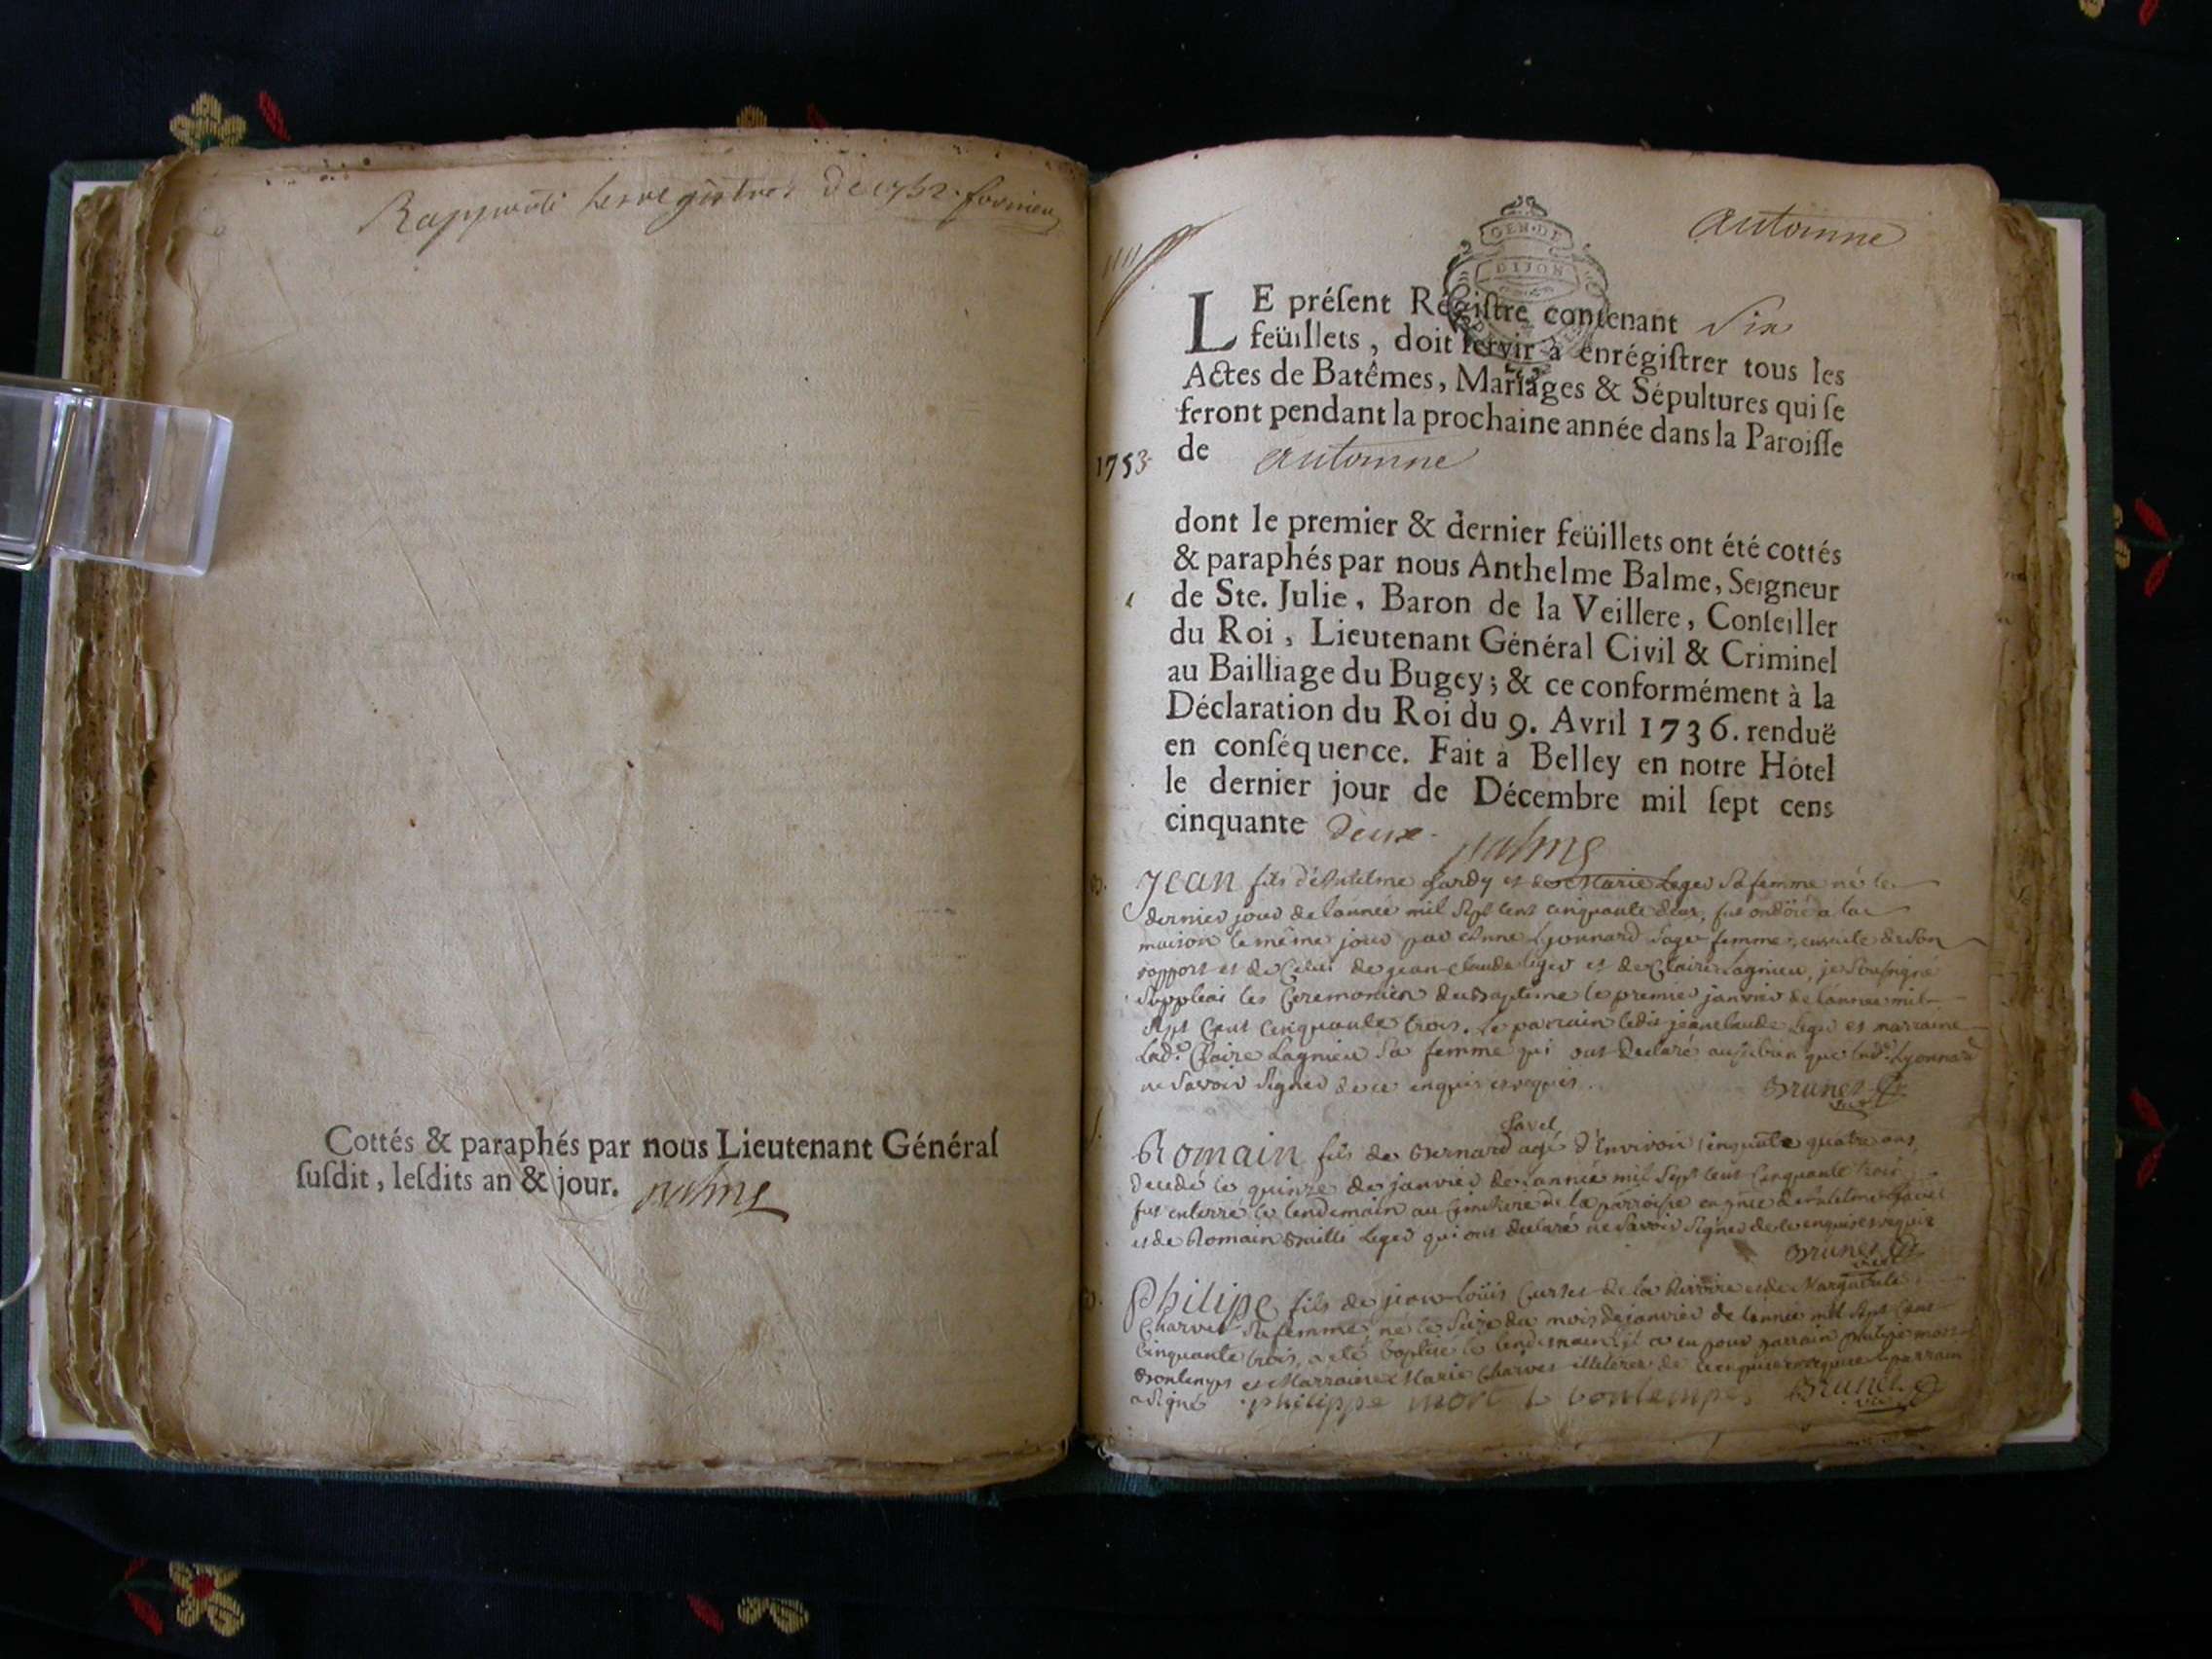 Rapporté les registres de 1752.
Cottés & paraphés par nous Lieutenant Général
ſuſdit, leſdits an & jour. Balme
Automne
GEN·DE
DIJON
LE préſent Régiſtre contenant Six
feüillets, doit ſervir à enrégiſtrer tous les
Actes de Batêmes, Mariages & Sépultures qui ſe
feront pendant la prochaine année dans la Paroiſſe
1753 de Automne
dont le premier & dernier feüillets ont été cottés
& paraphés par nous Anthelme Balme, Seigneur
de Ste. Julie, Baron de la Veillere, Conſeiller
du Roi, Lieutenant Général Civil & Criminel
au Bailliage du Bugey; & ce conformément à la
Déclaration du Roi du 9. Avril 1736. renduë
en conſéquence. Fait à Belley en notre Hôtel
le dernier jour de Décembre mil ſept cens
cinquante Deux.
Balme
Jean fils d'Anthelme Lardy et de Marie Leger Sa femme né le
dernier jour de l'année mil Sept cent cinquante deux, fut ondoié a la
maison le même jour par Anne Lyonnard Sage femme, ensuite de Son
rapport et de Celui de jean Claude Leger et de Claire Lagnieu, je Soussigné
Suppleai les Ceremonies du Baptême le premier janvier de l'année mil
Sept Cent Cinquante trois. Le parrain ledit jean claude Leger et marraine
Lad.e Claire Lagnieu Sa femme qui ont declaré aussi bien que lad.e Lyonnard
ne Savoir Signer de ce enquis et requis.
Brunet
Romain fils de Bernard Savel agé d'environ cinquante quatre ans,
decedé le quinze de janvier de l'année mil Sept Cent Cinquante trois
fut enterré le lendemain au Cimetiere de la parroisse en p̃nce d'Anthelme Savel
et de Romain Leger qui ont declaré ne Savoir Signer de ce enquis et requis
Brunet
Philipe fils de jean Loüis Curtet de la Riviere et de Marguerite
Charvet Sa femme, né le Seize du mois de janvier de l'année mil Sept Cent
Cinquante trois, a eté baptisé le lendemain, il a eu pour parrain philipe mort
Bontemps et Marraine Marie Charvet illiterée de ce enquise et requise le parrain
a Signé philippe mort bontemps Brunet